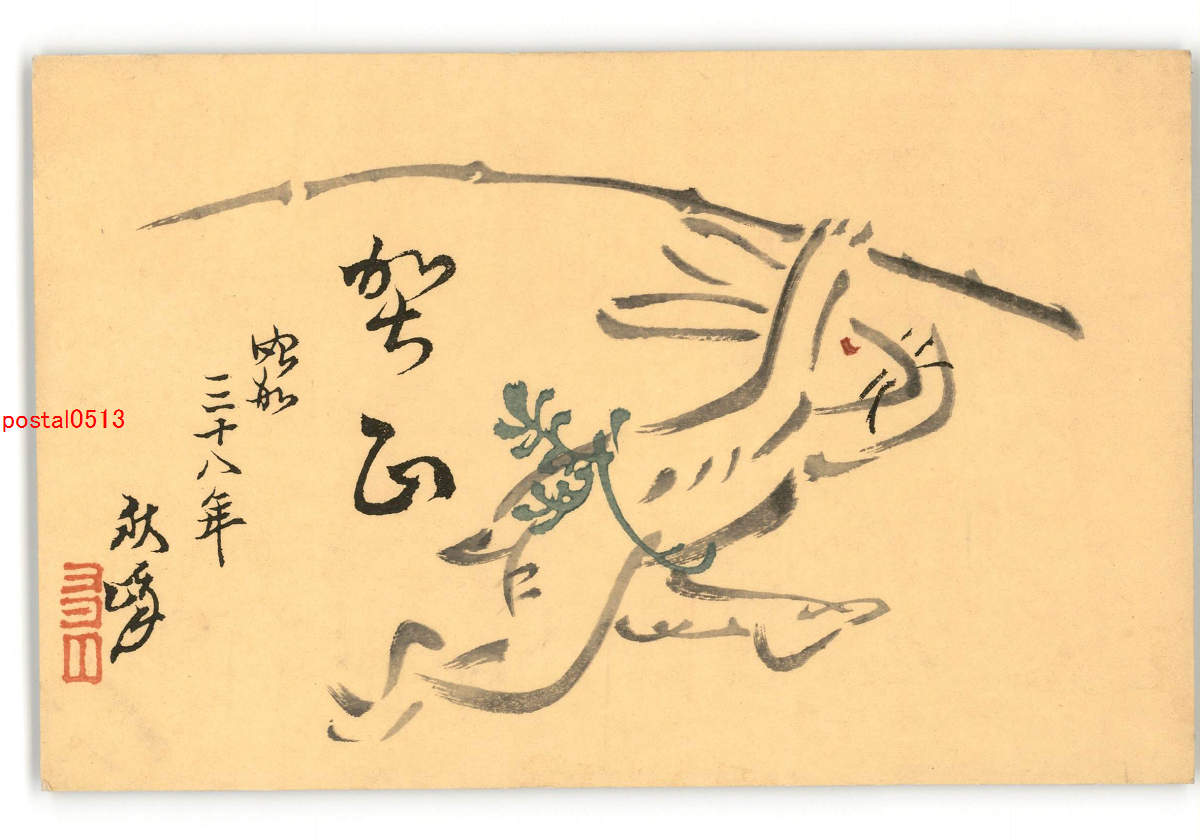 賀正
昭和三十八年
秋峰
postal0513